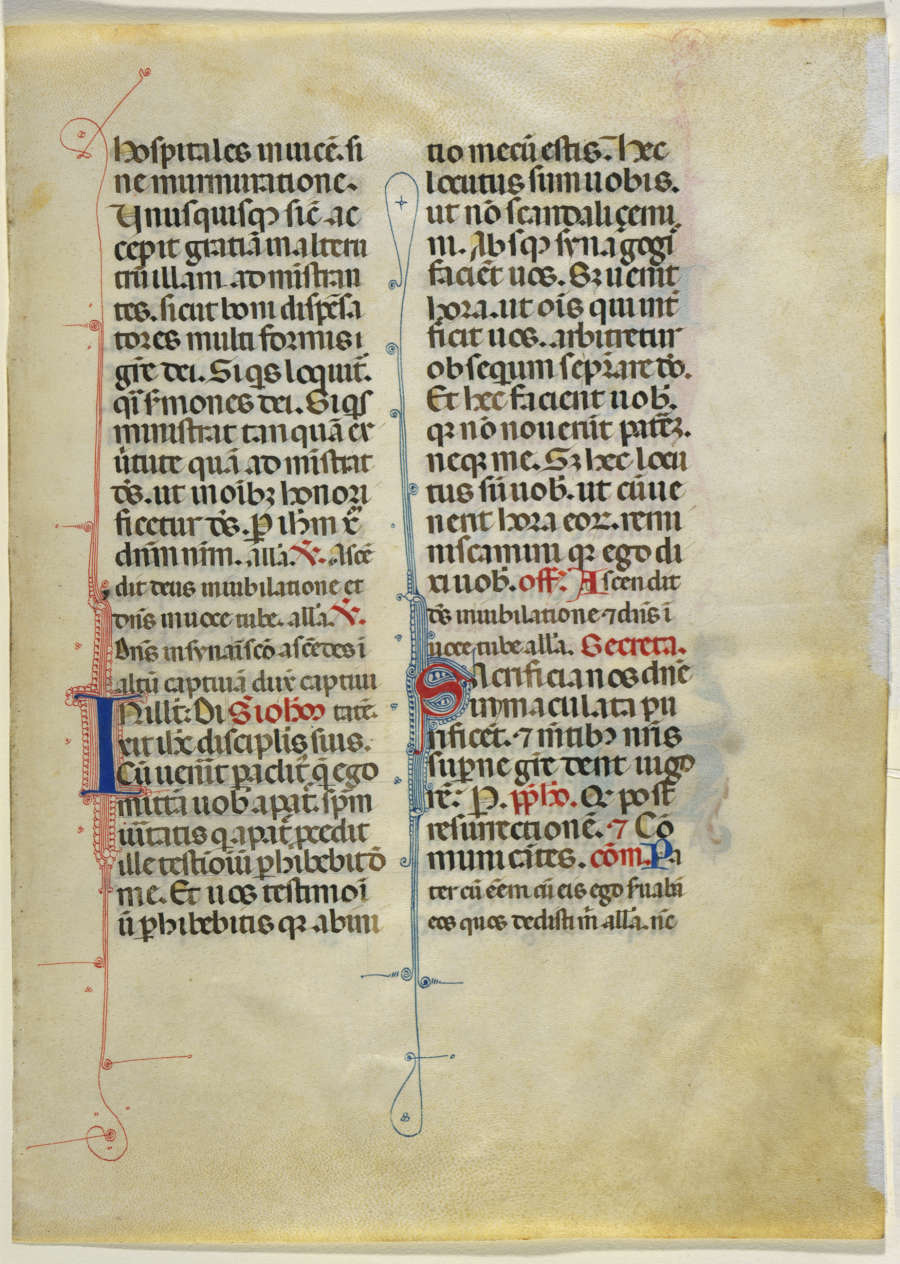 hospitales inuicē. si
ne murmuratione.
Vnusquisqȝ sic̄ ac
cepit gratiā in alteru
trū illam administran
tes. sicut boni dispēsa
tores multiformis i
grē dei. Siqs loquit᷑.
q̄i s̄mones dei. Siqs
ministrat tanquā ex
ůtute quā administrat
ds̄. ut in oībȝ honori
ficetur ds̄. P ihm xp̄
dnm nrm. alla. V. Ascē
dit deus in iubilatione et
dn̄s in uoce tube. alla. V.
Dn̄s in syna in scō ascēdes i
altū captiuā dux̄ captiui
In ill t̄. Di S ioħem tatē.
xit ihc disciplis suis.
Cū uenit paclit᷑ q̄ ego
mittā uob̄ a pat̄. spm̄
ůitatis q̄ a pat̄ pcedit
ille testioniū phibebit d̄
me. Et uos testimoī
ū phibebitis qȝ ab ini
tio mecū estis. Hec
locutus sum uobis.
ut nō scandaliçemi
ni. Absqȝ synagogi
faciēt uos. Sȝ uenit
hora. ut oīs qui int̄
ficit uos. arbitretur
obsequium se p̄rare dō.
Et hec facient uob̄.
qȝ nō nouerūt patrēȝ.
neqȝ me. Sȝ hec locu
tus sū uob̄. ut cū ue
nerit hora eoꝝ. remi
niscamini qȝ ego di
xi uob̄. off̄. Ascendit
ds̄ in iubilatione ⁊ dn̄s ī
uoce tube alla. Secreta.
Sacrificia nos dn̄e
inmaculata pu
rificēt. ⁊ m̄tibȝ nr̄is
sup̄ne grē dent uigo
rē: P. pp̄ho. Qȝ post
resurrectionē. ⁊ Cō
municātes. cōm. Pa
ter cū eēm cū eis ego s̄uabā
eos quos dedisti m̄ alla. nc̄